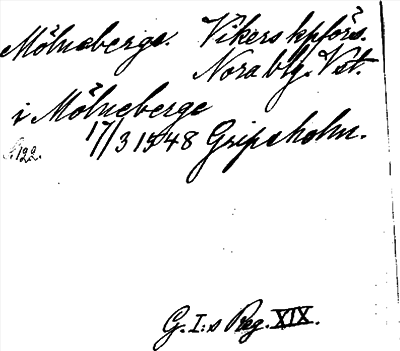 Mölneberge. Vikers kpförs.
Nora blg. Vst.
i Mölneberge
17/3 1548 Gripsholm.
S. 122.
G. I:s Reg. XIX.